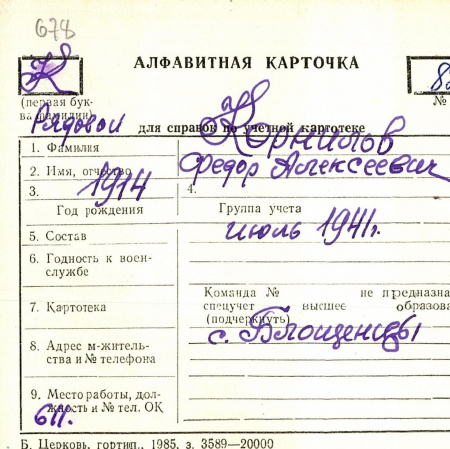 678
К
АЛФАВИТНАЯ КАРТОЧКА
(первая бук-
ва фамилии)
№
Рядовой
для справок по учетной картотеке
1. Фамилия
Корнилов
2. Имя, отчество
Федор Алексеевич
3. 1914 4.
Год рождения Группа учета
5. Состав июль 1941г.
6. Годность к воен-
службе
7. Картотека
Команда № не предназна
спецучет высшее образова
(подчеркнуть)
с. 61
8. Адрес м-житель-
ства и № телефона
9. Место работы, дол-
жность и № тел. ОК
611.
Б. Церковь, гортип., 1985, з. 3589—20000